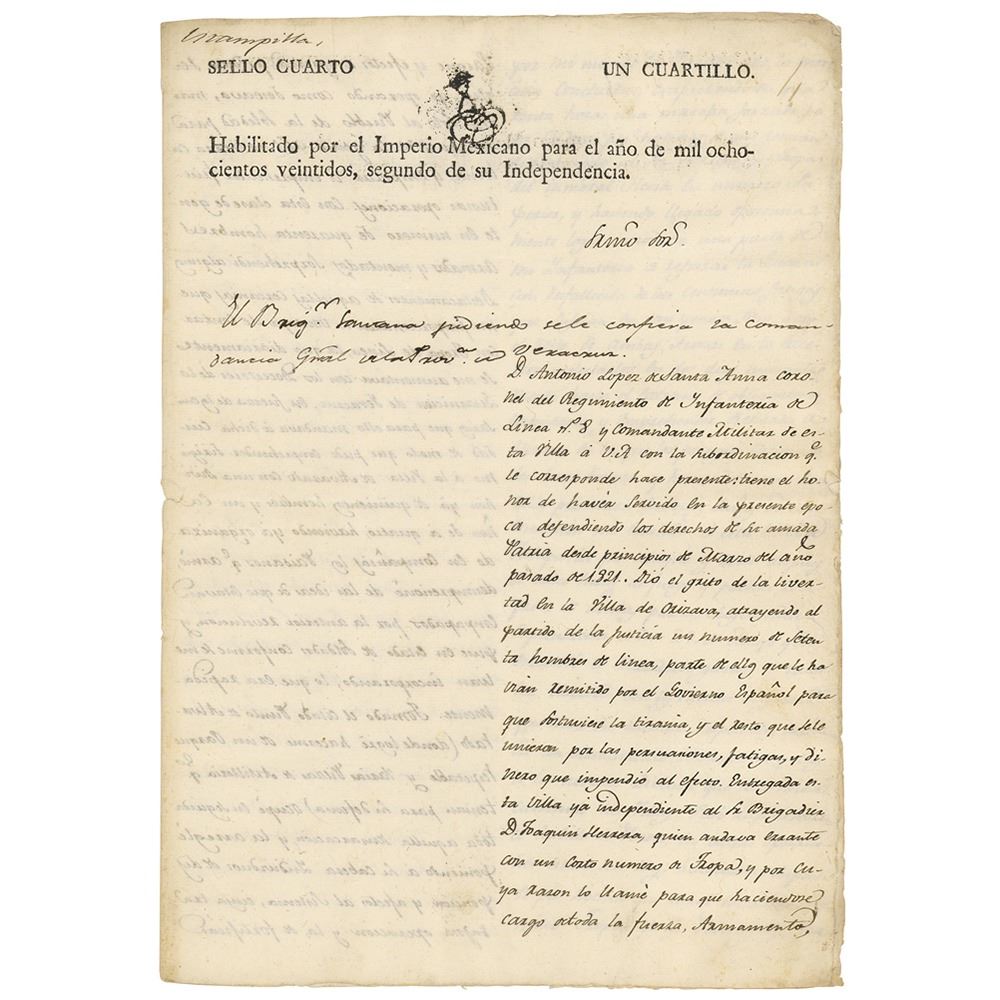 Estampilla.
SELLO CUARTO UN CUARTILLO.
Habilitado por el Imperio Mexicano para el año de mil ocho-
cientos veintidos, segundo de su Independencia.
Exmõ Sõr.
El Brigr. Santana pidiendo se le confiera la Coman-
dancia Gral de la Prova. de Veracruz.
D. Antonio Lopez de Santa Anna Coro-
nel del Regimiento de Infanteria de
Linea nº. 8 y Comandante Militar de es-
ta Villa á V.E con la subordinacion qe
le corresponde hace presente: tiene el ho-
nor de havér servido en la presente epo-
ca defendiendo los derechos de su amada
Patria desde principios de Marzo del año
pasado de 1821. Dió el grito de la liver-
tad en la Villa de Orizava, atrayendo al
partido de la Justicia un numero de seten-
ta hombres de linea, parte de ellos que le ha-
vian remitido por el Govierno Español para
que sostuviese la tirania, y el resto que se le
unieron por las persuaciones, fatigas, y di-
nero que impendió al efecto. Entregada es-
ta Villa yá independiente al Sr Brigadier
D. Joaquin Herrera, quien andava errante
con un corto numero de Tropa, y por cu-
ya razon lo llamé para que haciendose
cargo de toda la fuerza, Armamento,